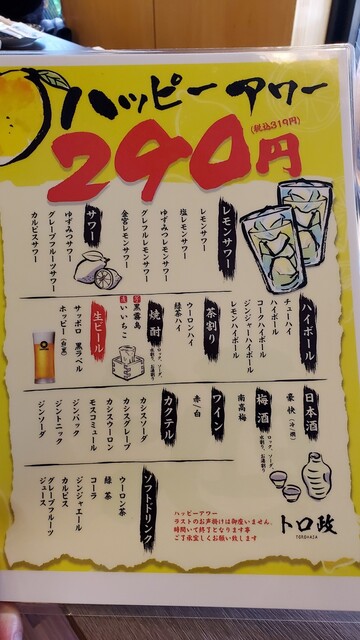 ハッピーアワー
290円
(税込319円)
レモンサワー
レモンサワー
塩レモンサワー
ゆずみつレモンサワー
グレフルレモンサワー
金宮レモンサワー
サワー
ゆずみつサワー
グレープフルーツサワー
カルピスサワー
ハイボール
チューハイ
ハイボール
コークハイボール
ジンジャーハイボール
レモンハイボール
茶割り
ウーロンハイ
緑茶ハイ
焼酎
ロック、ソーダ、水割り、お湯割り
芋 黒霧島
麦 いいちこ
生ビール
サッポロ 黒ラベル
ホッピー(白/黒)
日本酒
豪快(冷/燗)
梅酒
ロック、ソーダ、水割り、お湯割り
南高梅
ワイン
赤/白
カクテル
カシスソーダ
カシスグレープ
カシスウーロン
モスコミュール
ジンバック
ジントニック
ジンソーダ
ソフトドリンク
ウーロン茶
緑茶
コーラ
ジンジャエール
カルピス
グレープフルーツジュース
ハッピーアワー
ラストのお声掛けは御座いません、
時間いて終了となります事
ご了承宜しくお願い致します
トロ政
TOROMASA